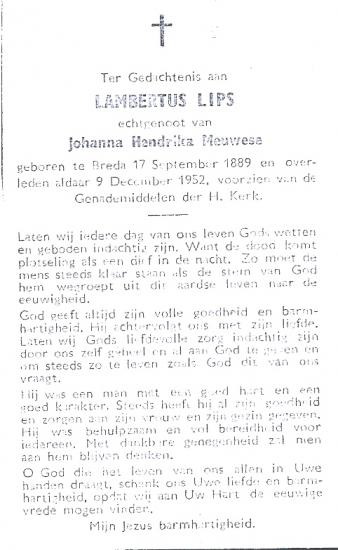 Ter Gedachtenis aan
LAMBERTUS LIPS
echtgenoot van
Johanna Hendrika Meuwese
geboren te Breda 17 September 1889 en over-
leden aldaar 9 December 1952, voorzien van de
Genademiddelen der H. Kerk.
Laten wij iedere dag van ons leven Gods wetten
en geboden indachtig zijn. Want de dood komt
plotseling als een dief in de nacht. Zo moet de
mens steeds klaar staan als de stem van God
hem wegroept uit dit aardse leven naar de
eeuwigheid.
God geeft altijd zijn volle goedheid en barm-
hartigheid. Hij achtervolgt ons met zijn liefde.
Laten wij Gods liefdevolle zorg indachtig zijn
door ons zelf geheel en al aan God te geven en
om steeds zo te leven zoals God dit van ons
vraagt.
Hij was een man met een goed hart en een
goed karakter. Steeds heeft hij al zijn goedheid
en zorgen aan zijn vrouw en zijn gezin gegeven.
Hij was behulpzaam en vol bereidheid voor
iedereen. Met dankbare genegenheid zal men
aan hem blijven denken.
O God die het leven van ons allen in Uwe
handen draagt, schenk ons Uwe liefde en barm-
hartigheid, opdat wij aan Uw Hart de eeuwige
vrede mogen vinden.
Mijn Jezus barmhartigheid.